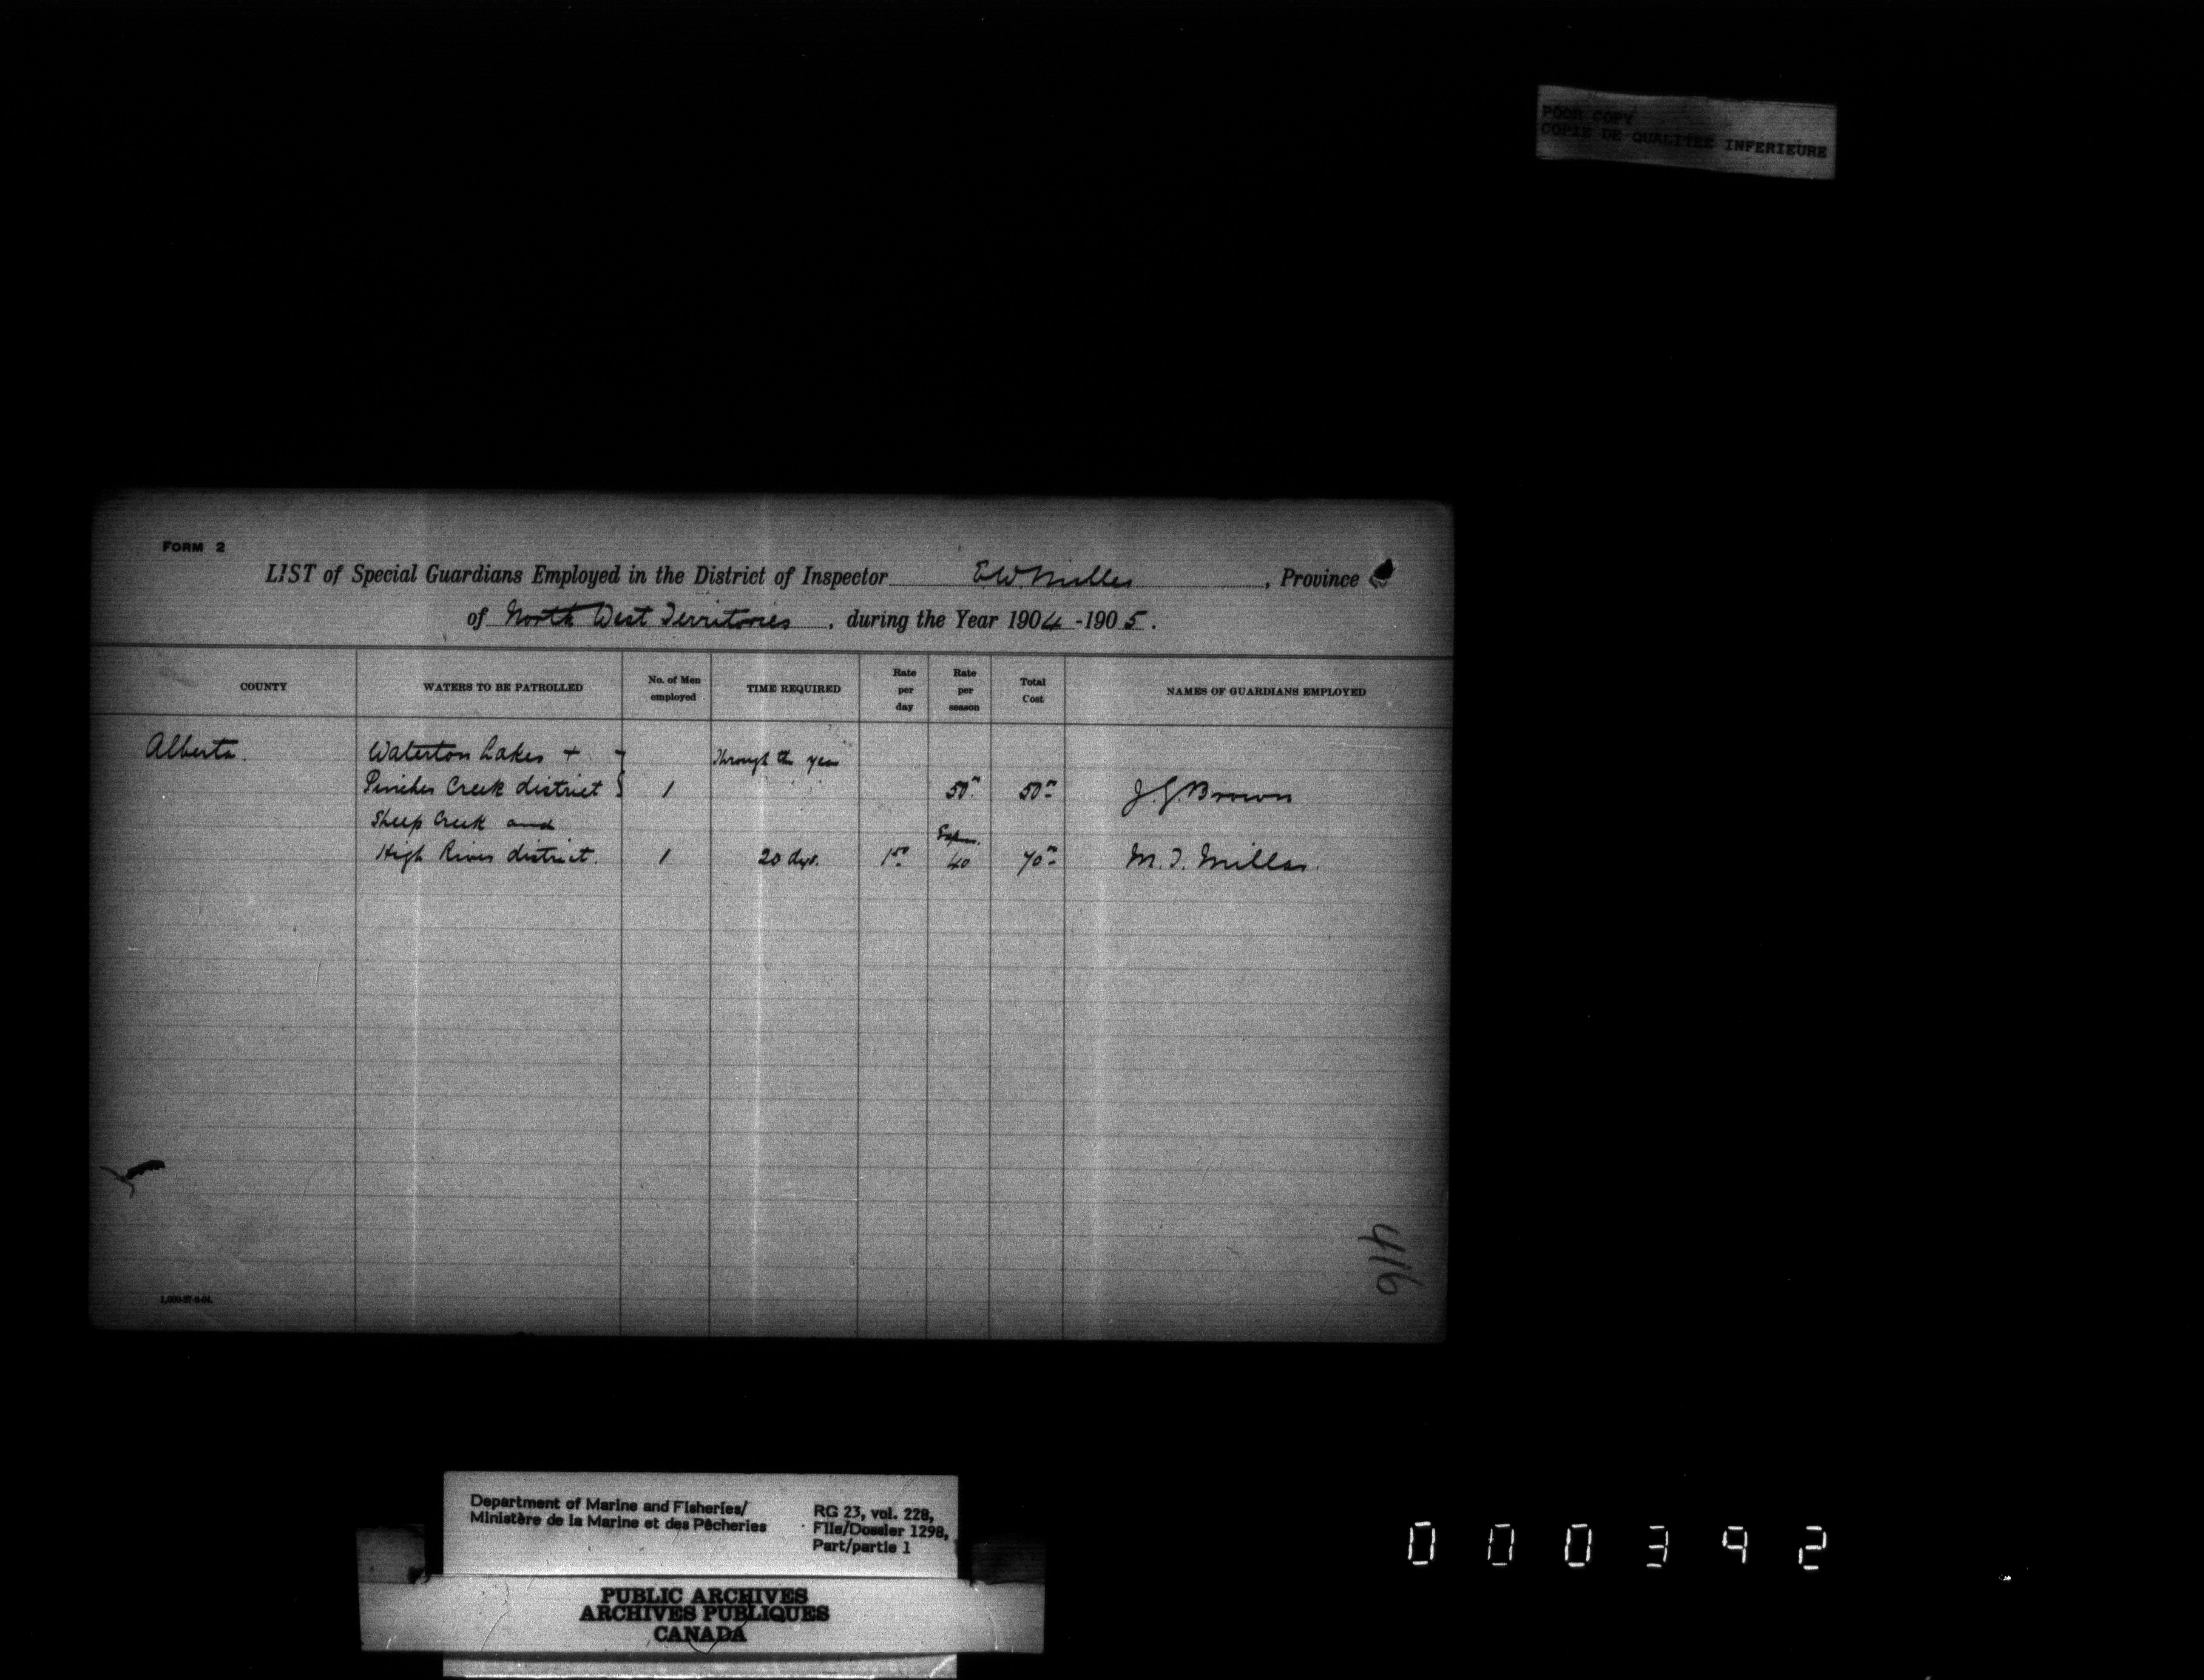 POOR COPY
COPIE DE QUALITEE INFERIEURE
FORM 2
LIST of Special Guardians Employed in the District of Inspector E W Miller, Province
of North West Territories, during the Year 1904-1905.
COUNTY WATERS TO BE PATROLLED No. of Men employed TIME REQUIRED Rate per day Rate per season Total Cost NAMES OF GUARDIANS EMPLOYED
Alberta. Waterton Lakes + Through the year
Pincher Creek district 1 50 50 J. G. Brown
Sheep Creek and
High River district. 1 20 dys. 1 50 40 70 M. T. Millar.
416
Department of Marine and Fisheries/
Ministère de la Marine et des Pêcheries
RG 23, vol. 228,
File/Dossier 1298,
Part/partie 1
PUBLIC ARCHIVES
ARCHIVES PUBLIQUES
CANADA
000392